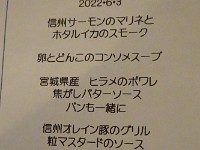 2022・6・3
信州サーモンのマリネと
ホタルイカのスモーク
卵とどんこのコンソメスープ
宮城県産　ヒラメのポワレ
焦がしバターソース
パンも一緒に
信州オレイン豚のグリル
粒マスタードのソース